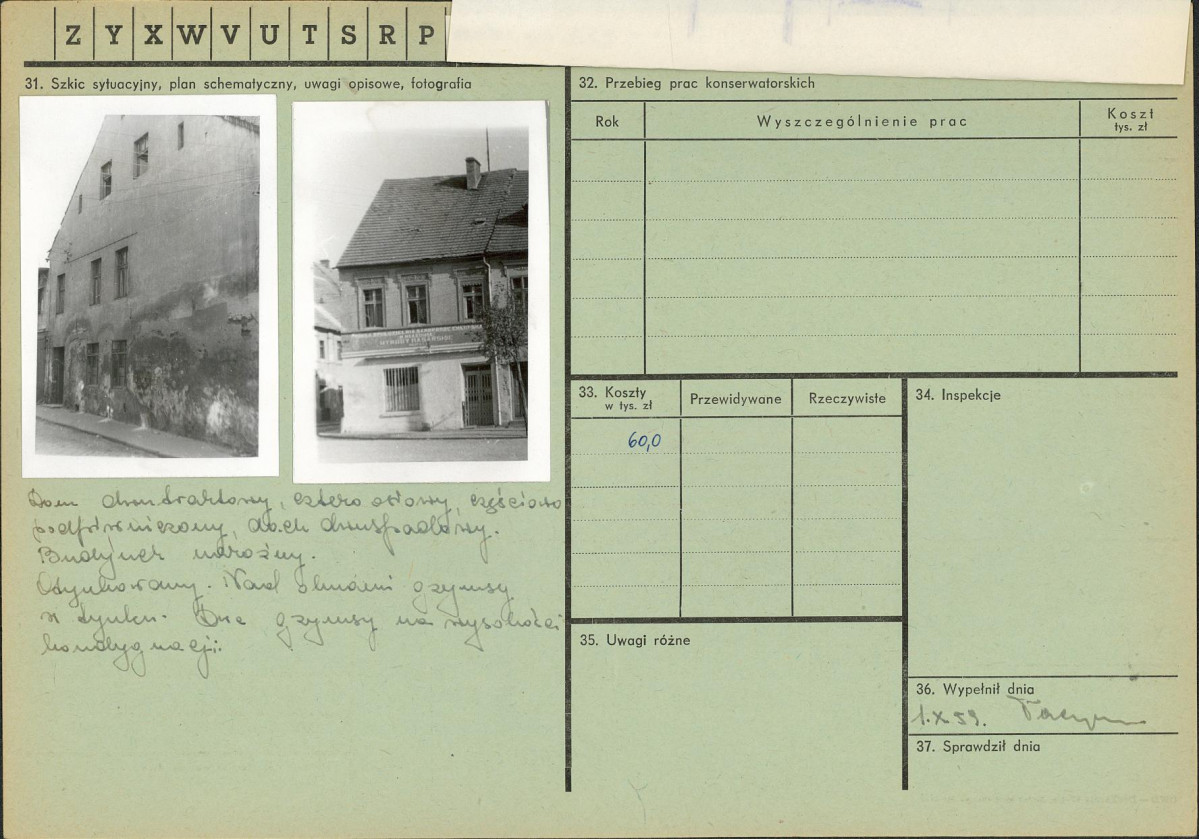 Z Y X W V U T S R P
31. Szkic sytuacyjny, plan schematyczny, uwagi opisowe, fotografia
WYROBY MASARSKIE
Dom dwutraktowy, czteroosiowy, częściowo
podpiwniczony, dach dwuspadowy.
Budynek narożny.
Otynkowany. Nad oknami gzymsy
z tynku. Dwa gzymsy na wysokości
kondygnacji.
32. Przebieg prac konserwatorskich
Rok Wyszczególnienie prac Koszt
tys. zł
33. Koszty
w tys. zł
Przewidywane Rzeczywiste
60,0
34. Inspekcje
35. Uwagi różne
36. Wypełnił dnia
1.X.59.
37. Sprawdził dnia